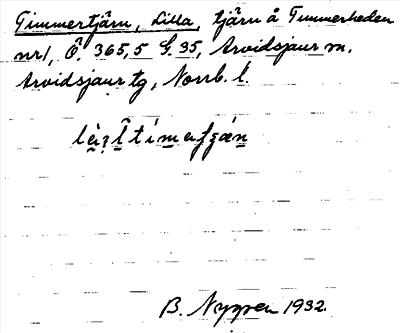 Timmertjärn, Lilla, tjärn å Timmerheden
nr 1, Ö. 365,5 G. 35, Arvidsjaur sn.
Arvidsjaur tg, Norrb. l.
B. Nygren 1932.